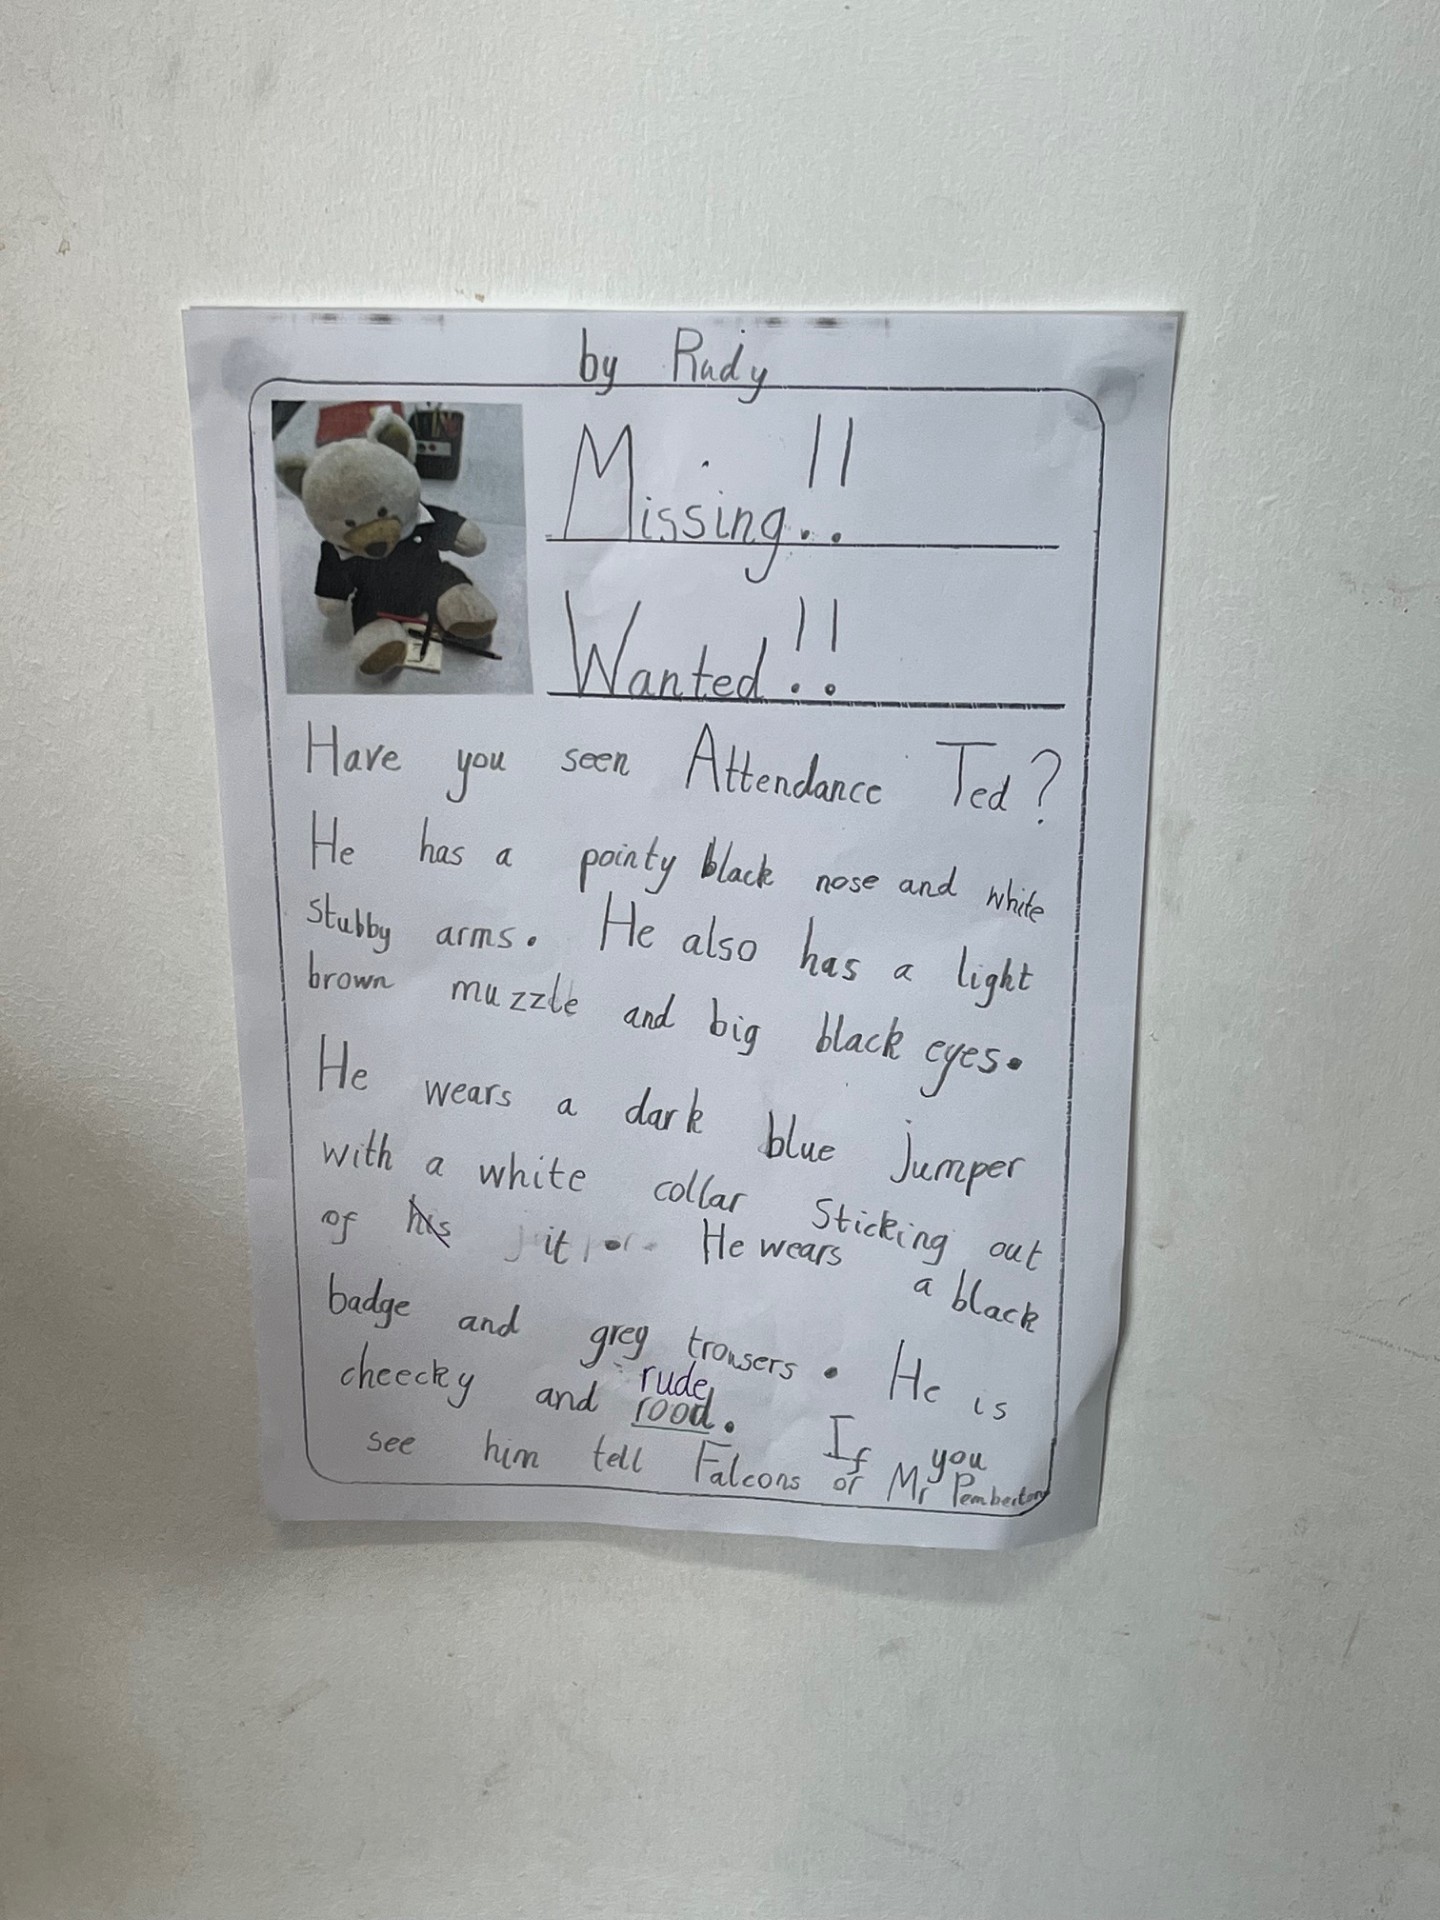 by Rudy
Missing!!
Wanted!!
Have you seen Attendance Ted?
He has a pointy black nose and white
stubby arms. He also has a light
brown muzzle and big black eyes.
He wears a dark blue jumper
with a white collar Sticking out
of his it. He wears a black
badge and grey trousers. He is
rude
cheecky and rood. If you
see him tell Falcons or Mr Pemberton